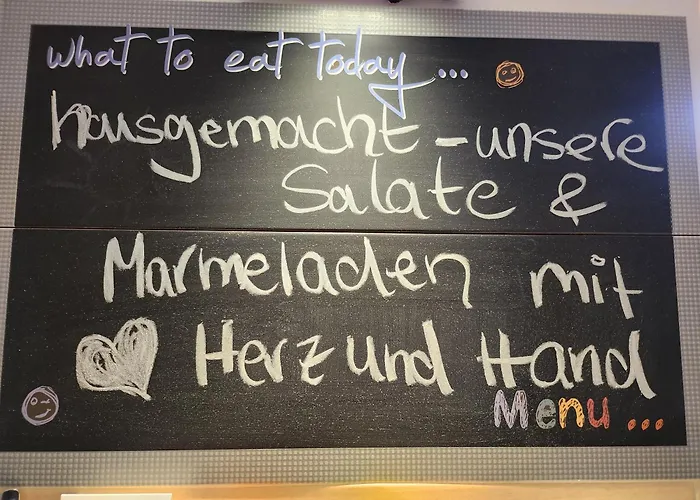 what to eat today...
hausgemacht - unsere
Salate &
Marmeladen mit
Herz und Hand
Menu...